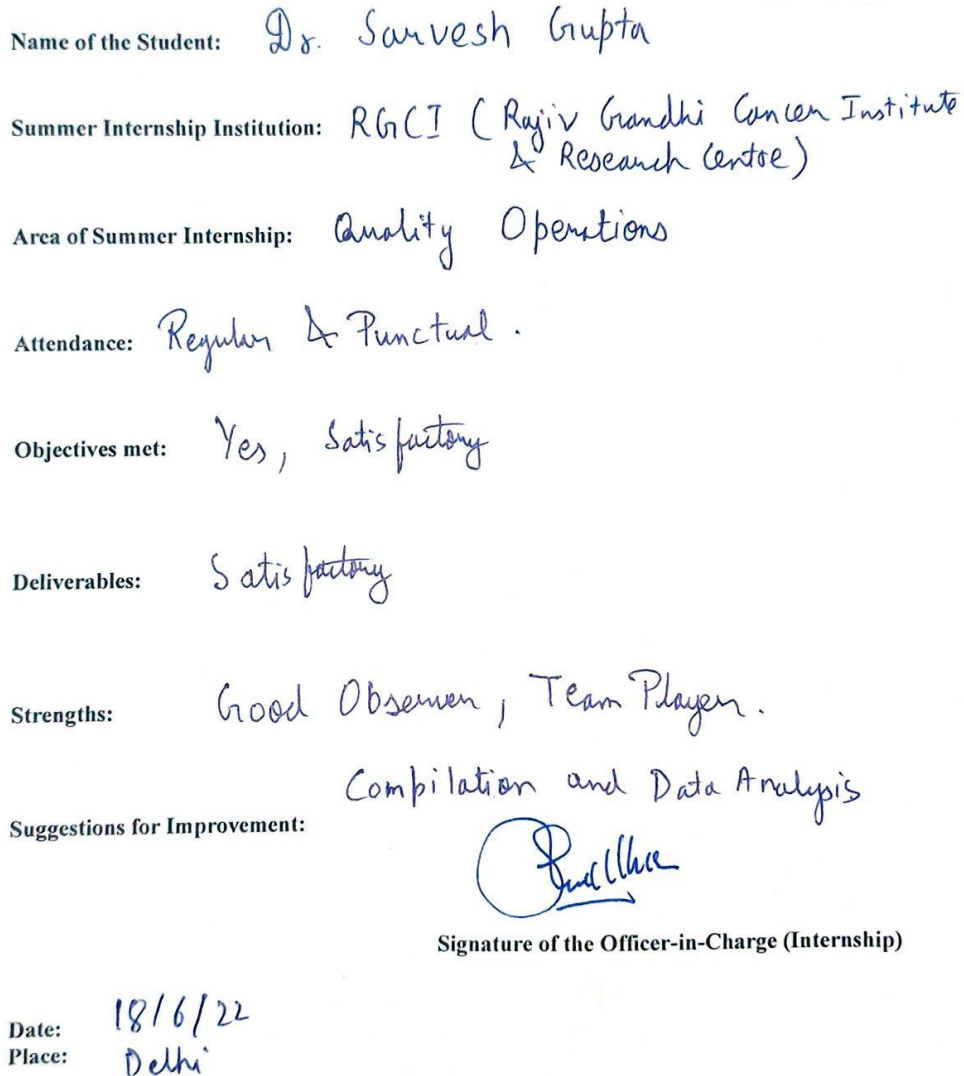 Name of the Student: Dr. Sarvesh Gupta
Summer Internship Institution: RGCI (Rajiv Gandhi Cancer Institute
& Research Centre)
Area of Summer Internship: Quality Operations
Attendance: Regular & Punctual.
Objectives met: Yes, Satisfactory
Deliverables: Satisfactory
Strengths: Good Observer, Team Player.
Compilation and Data Analysis
Suggestions for Improvement:
Signature of the Officer-in-Charge (Internship)
Date: 18/6/22
Place: Delhi